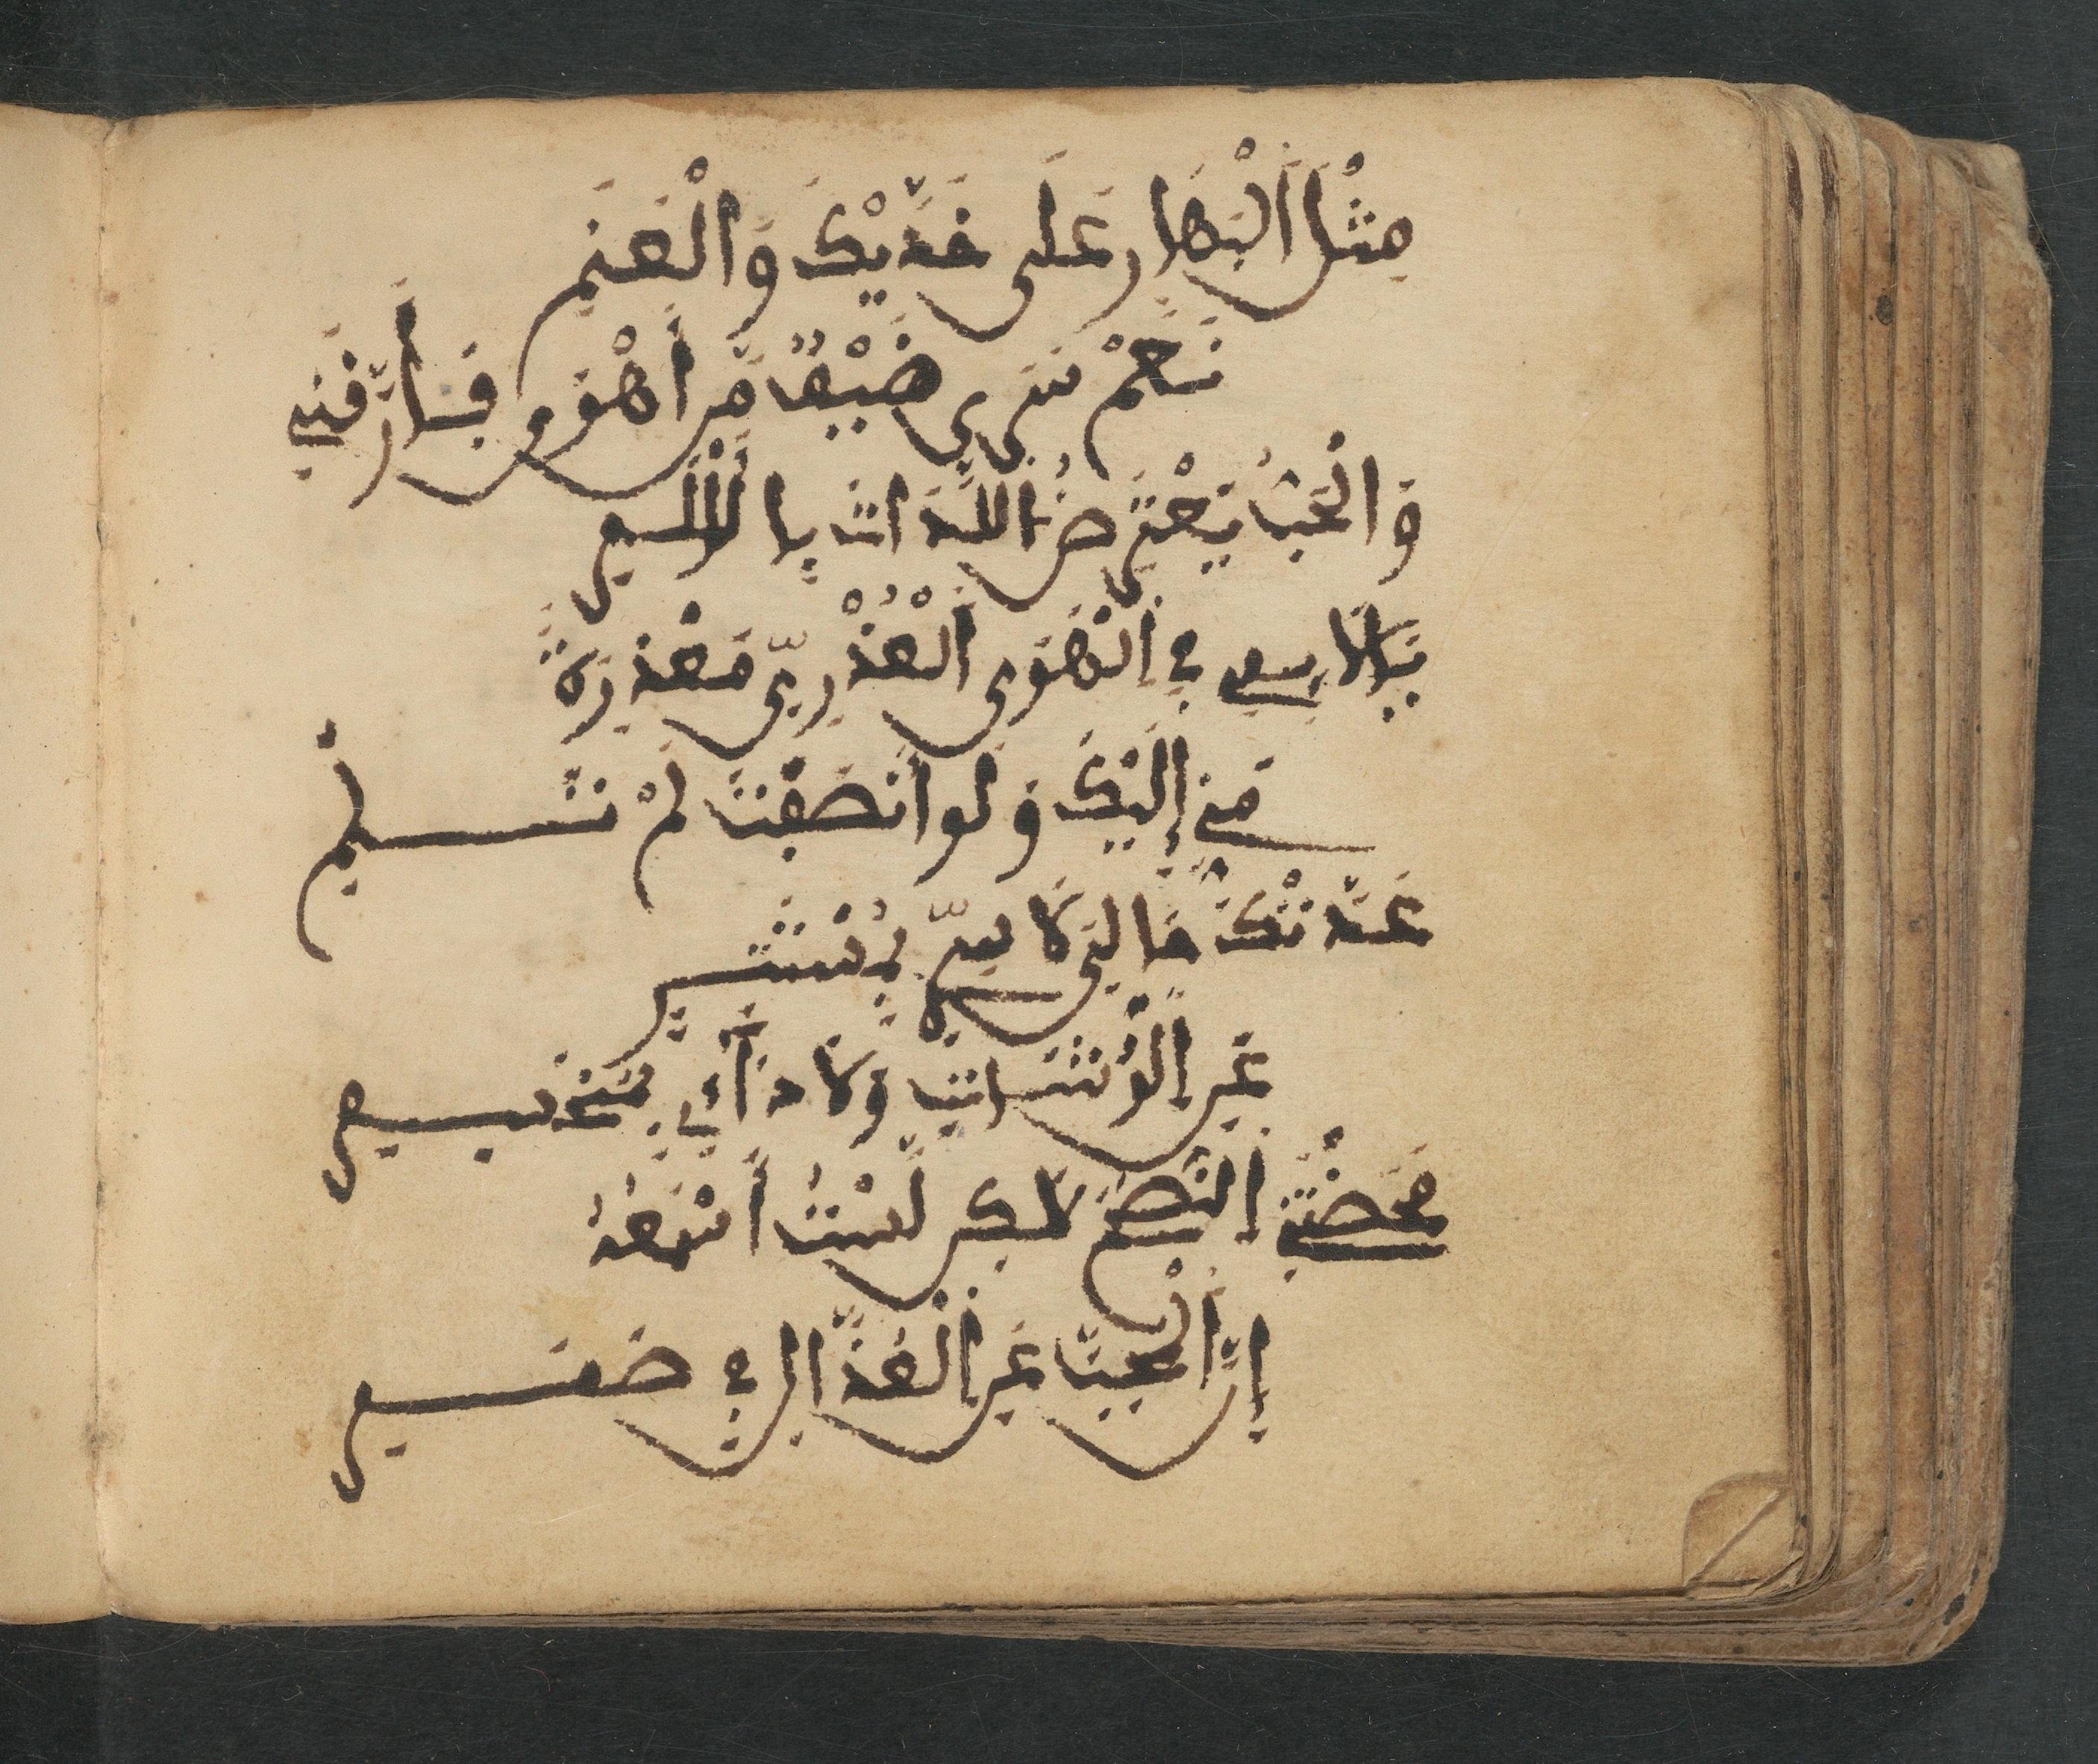 مِثْلَ اَلْبَهَارِ عَلَى خَدَّيْكَ وَالْعَنَمِ
نَعَمْ سَرَى طَيْفُ مَنْ أَهْوَى فَأَرَّقَنِي
وَالْحُبُّ يَعْتَرِضُ اللَّذَّاتِ بِالْأَلَمِ
يَا لَائِمِي فِي اِلْهَوَى اَلْعُذْرِيِّ مَعْذِرَةً
مِنِّي إِلَيْكَ وَلَو أَنْصَفْتَ لَمْ تَلُمِ
عَدَتْكَ حَالِيَ لَا سِرِّي بِمُسْتَتِرٍ
عَنِ اِلْوُشَاتِ وَلَا دَائِي بِمُنْحَسِمِ
مَحَضْتَنِي اِلنُّصْحَ لَكِن لَسْتُ أَسْمَعُهُ
إِنَّ اَلْمُحِبَّ عَنِ اِلْعُذَّالِ فِي صَمَمِ